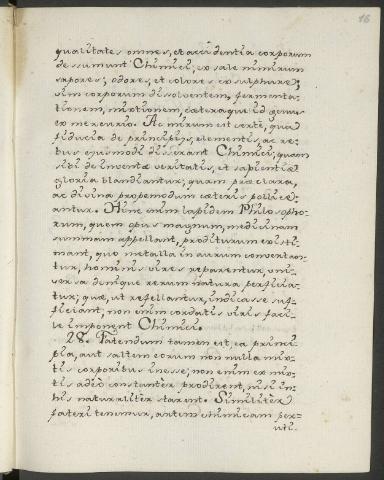 16
qualitates omnes, et accidentia corporum
desumunt Chimici; ex sale nimirum
sapores; odores, et colores ex sulphure;
vim corporum dissolventem, fermenta-
tionem, mixtionem, cæteraque id genus
ex mercurio. Ac mirum est certè, qua
fiducia de principijs, elementis, ac re-
bus ejusmodi disserant Chimici, quam
sibi de inventæ veritatis, et sapientiæ
gloria blandiantur; quam præclara,
ac divina propemodum cæteris pollice-
antur. Hinc enim lapidem Philosopho-
rum, quem opus magnum, medicinam
summam appellant, proditurum existi-
mant, quo metalla in aurum convertan-
tur, hominis vires reparentur uni-
versa denique rerum natura perficia-
tur; quæ, ut refellantur, indicasse suf-
ficiant; non enim cordatis viris faci-
le imponent Chimici.
28. Fatendum tamen est, ea princi-
pia, aut saltem eorum non nulla mix-
tis corporibus inesse; non enim ex mix-
tis adeò constanter prodirent, nisi in
his naturalitèr starent. Similitèr
fateri tenemur, autem chimicam per-
uti-